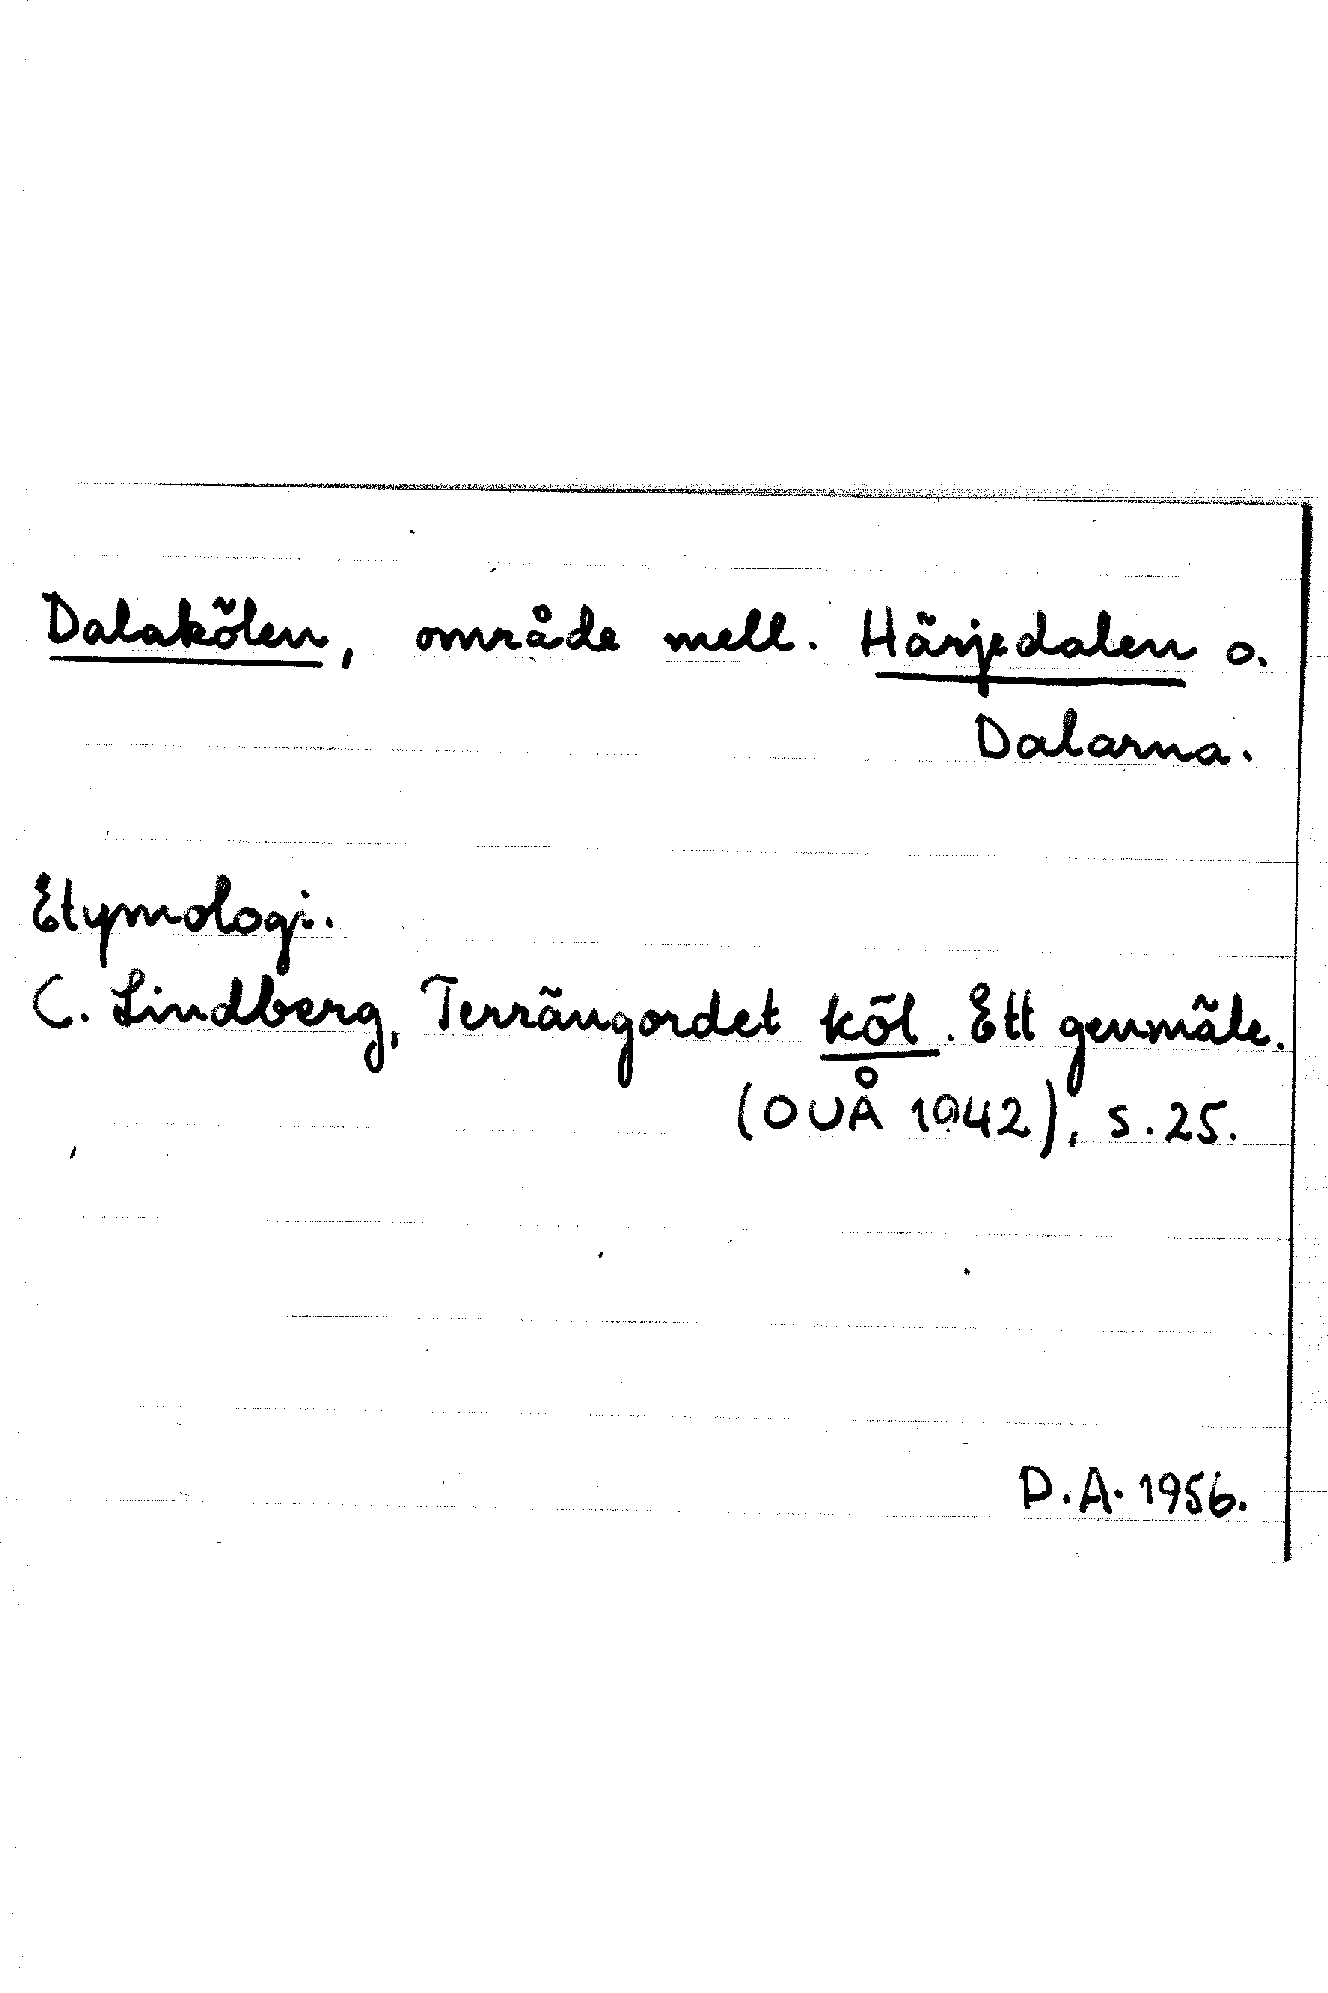 Dalakölen, område mell. Härjedalen o.
Dalarna.
Etymologi.
C. Lindberg, Terrängordet köl. Ett genmäle.
(OUÅ 1942), s. 25.
D.A. 1956.